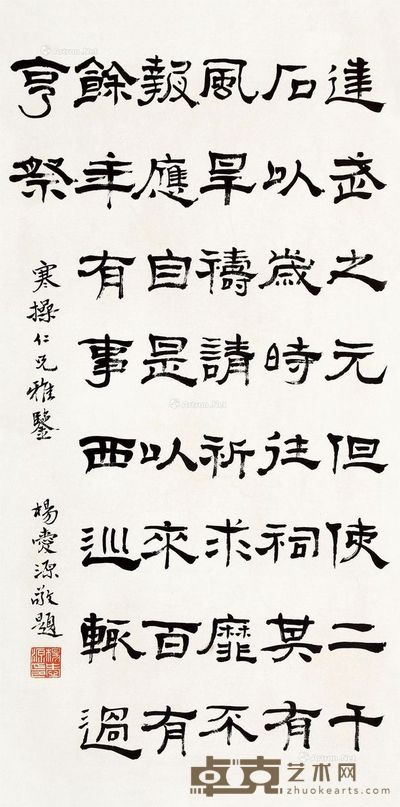 建武之元但使二千
石以歲時往祠其有
風旱禱請祈求靡不
報應自是以來百有
餘年有事西巡輒過
亨祭
寒操仁兄雅鑒
楊愛源敬題
楊愛源印
卓克艺术网
zhuokearts.com
Artron.Net